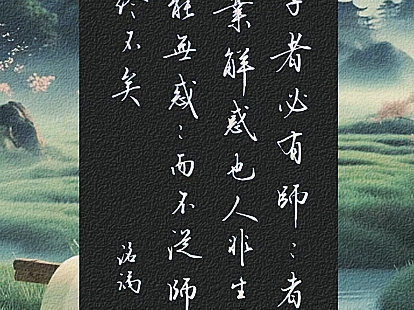 者必有師〻者
業解惑也人非生
能無惑〻而不從師
終不矣